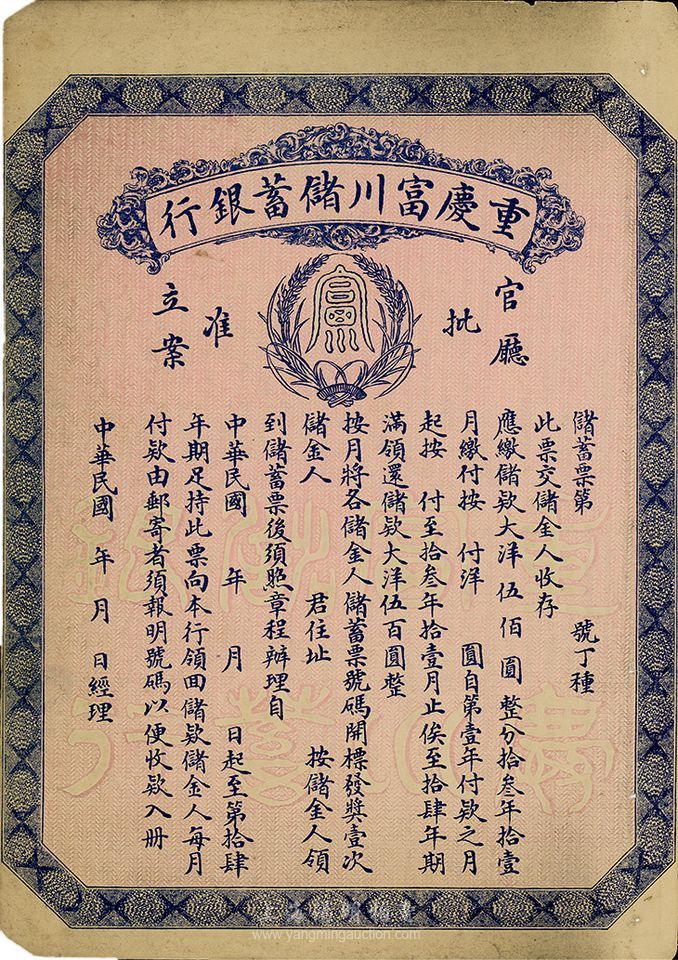 重慶富川儲蓄銀行
官廳
批
准
立案
富川
儲蓄票第 號丁種
此票交儲金人收存
應繳儲款大洋伍佰圓整分拾叁年拾壹
月繳付按 付洋 圓自第壹年付款之月
起按 付至拾叁年拾壹月止俟至拾肆年期
滿領還儲款大洋伍百圓整
按月將各儲金人儲蓄票號碼開標發獎壹次
儲金人 君住址 按儲金人領
到儲蓄票後須照章程辦理自
中華民國 年 月 日起至第拾肆
年期足持此票向本行領囬儲款儲金人每月
付款由郵寄者須報明號碼以便收款入册
中華民國 年 月 日經理
重富川儲銀
行蓄
www.yangmingauction.com